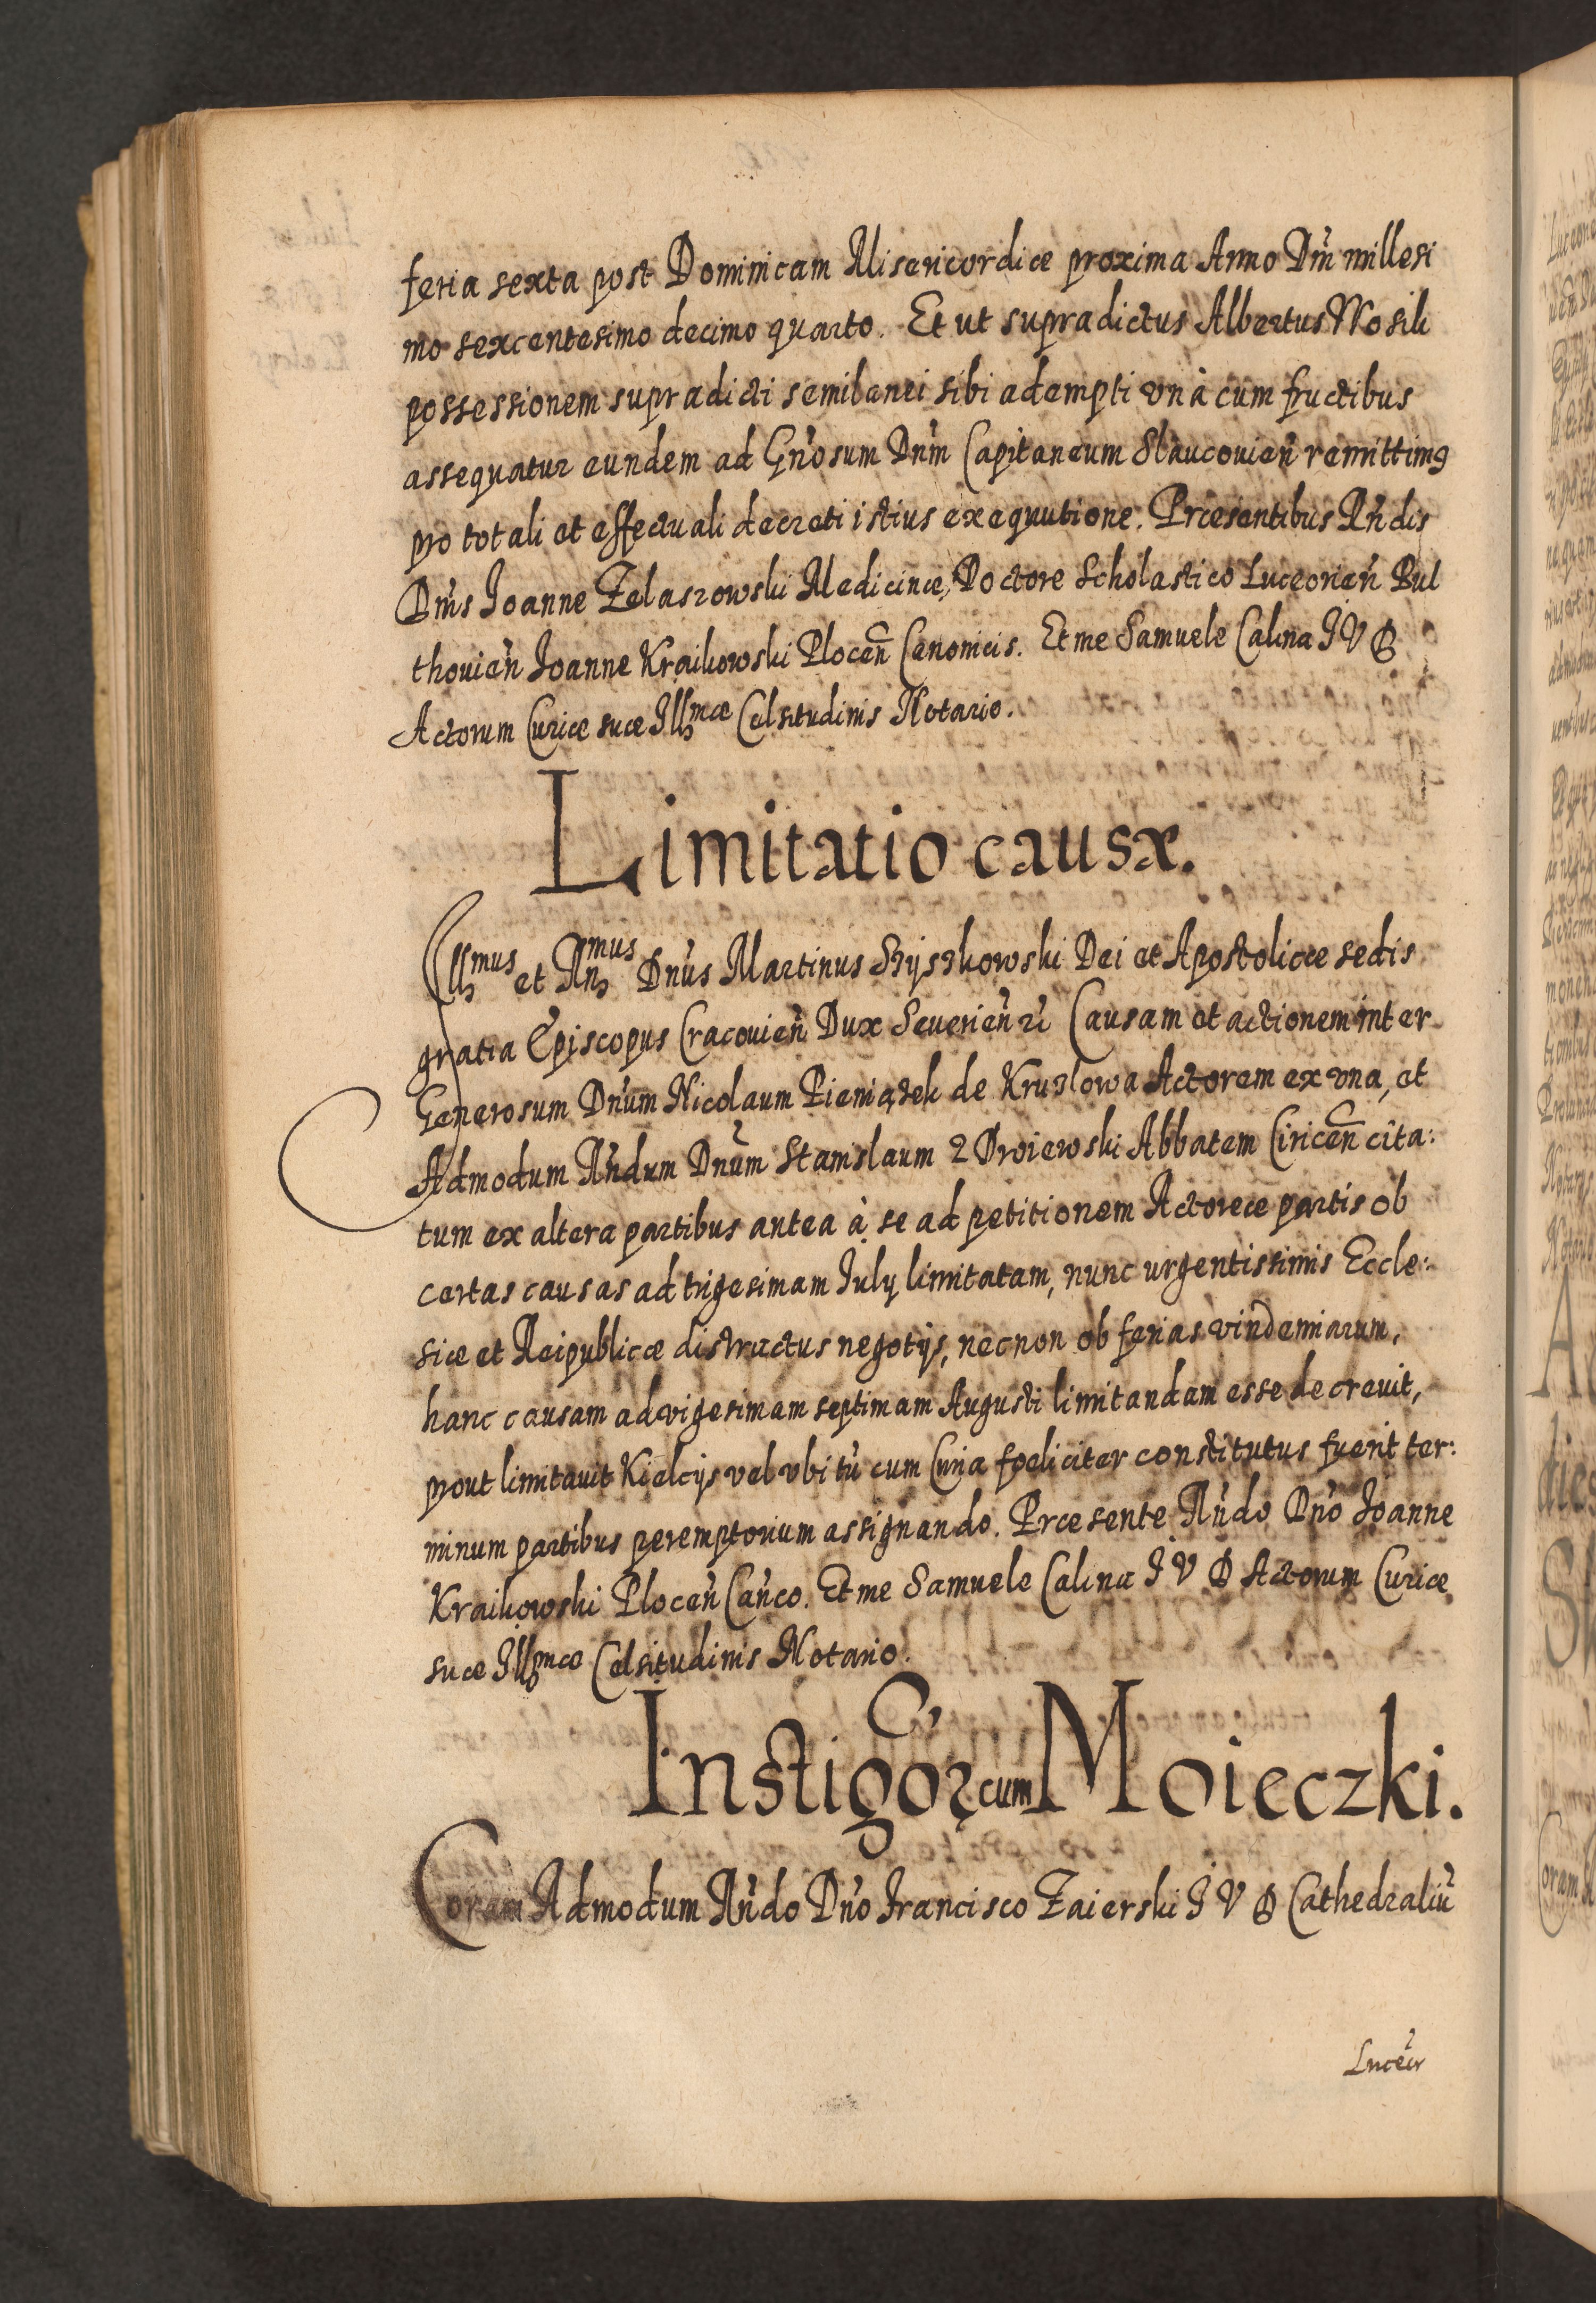 feria sexta post Dominicam Misericordiæ proxima Anno Dñi millesi
mo sexcentesimo decimo quarto. Et ut supradictus Albertus Wosik
possessionem supradicti semilanei sibi adempti vnà cum fructibus
assequatur eundem ad Gñosum Dnm̃ Capitaneum Slaucouieñ remittimꝯ
pro totali et effectuali decreti istius exequutione. Præsentibus Rñdis
Dñis Joanne Zelaszowski Medicinæ Doctore Scholastico Luceorieñ Pul
thouieñ Joanne Kraikowski Ploceñ Canonicis. Et me Samuele Calina J V D
Actorum Curiæ suæ Illmæ Celsitudinis Notario.
Limitatio causæ.
Illmus et Rnmus Dñus Martinus Szyszkowski Dei et Apostolicæ sedis
gratia Episcopus Cracouieñ Dux Seuerieñ Causam et actionem inter
Generosum Dñum Nicolaum Pieniążek de Kruzlowa Actorem ex vna, et
Admodum Rñdum Dnũm Stanislaum Drojewski Abbatem Ciriceñ cita:
tum ex altera partibus antea à se ad petitionem Actoreæ partis ob
certas causas ad trigesimam July limitatam, nunc urgentissimis Eccle:
siæ et Reipublicæ distractus negotijs, necnon ob ferias vindemiarum,
hanc causam ad vigesimam septimam Augusti limitandam esse decreuit,
prout limitauit Kielcijs vel vbi tũ cum Curia fœliciter constitutus fuerit ter:
minum partibus peremptorium assignando. Præsente Rñdo Dño Joanne
Kraikowski Ploceñ Cañco. Et me Samuele Calina J V D Actorum Curiæ
suæ Illmæ Celsitudinis Notario.
Instigor cum Moieczki.
Coram Admodum Rñdo Dño Francisco Zaierski J V D Cathedraliũ